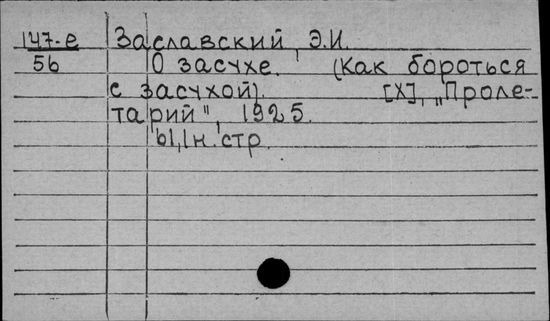 147-е Заславский, Э.И.
56 О засухе. (Как бороться
с засухой). [Х], „Проле-
тарий", 1925.
61,1н. стр.